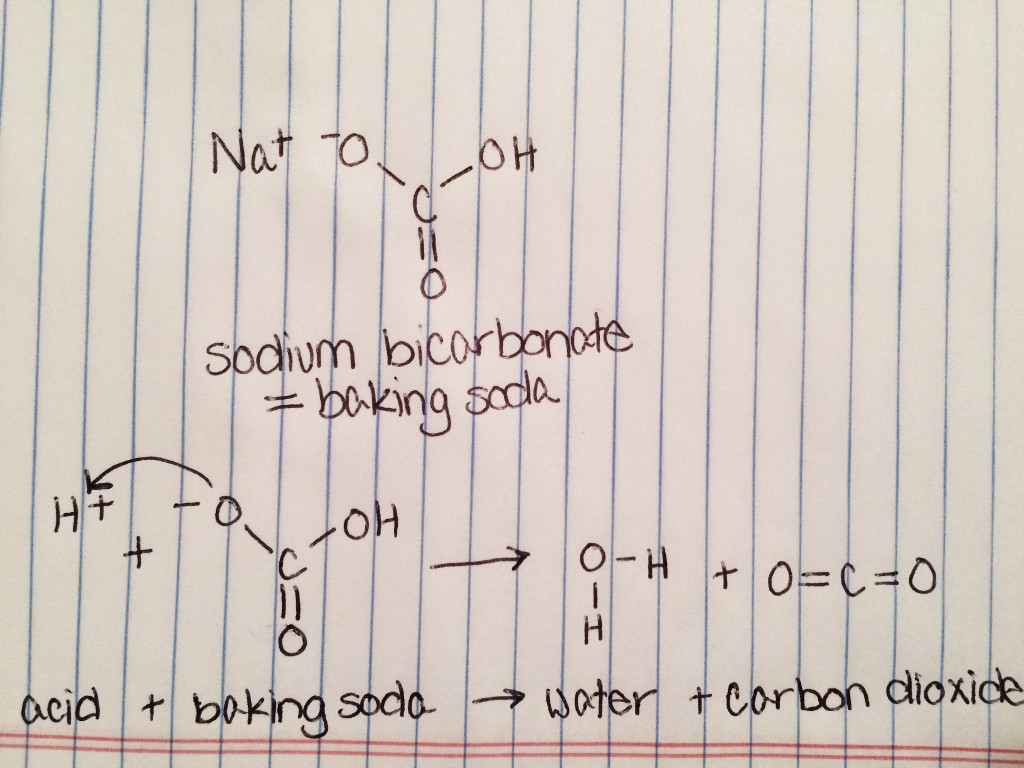 Na+ -O OH
C
||
O
sodium bicarbonate
= baking soda
H+ + -O C OH → O-H + O=C=O
||
O
|
H
acid + baking soda → water + carbon dioxide